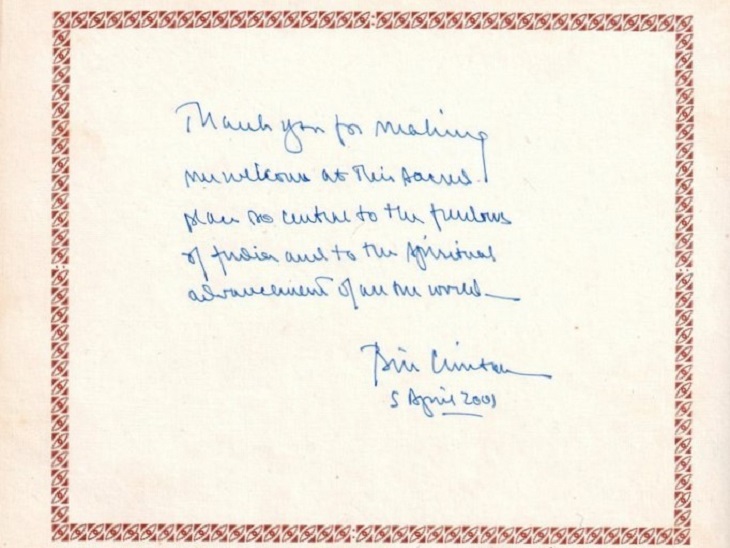 Thank you for making
me welcome at this sacred
place so central to the freedom
of India and to the spiritual
advancement of all the world—
Bill Clinton
5 April 2001